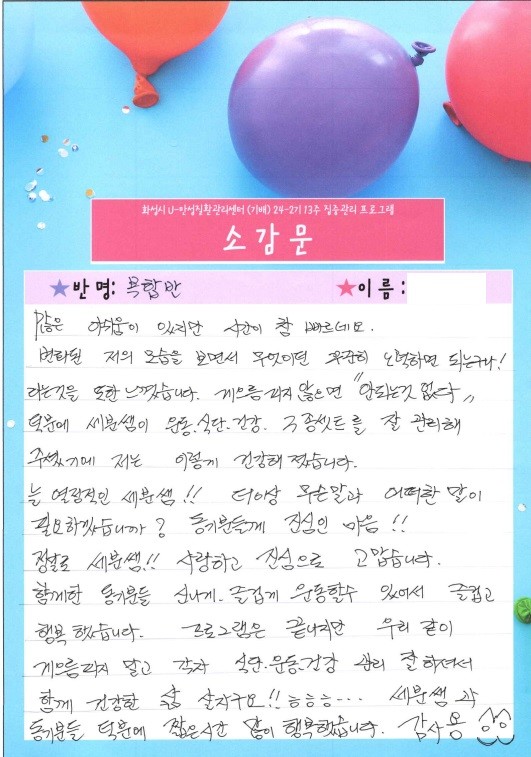 화성시 U-만성질환관리센터(기배) 24-2기 13주 집중관리 프로그램
소감문
반 명: 복합반
이 름:
많은 아쉬움이 있지만 시간이 참 빠르네요.
변화된 저의 모습을 보면서 무엇이던 꾸준히 노력하면 되는구나!
라는것을 또한 느꼈습니다. 게으름피지 않으면 "안되는것 없다"
덕분에 세분쌤이 운동.식단.건강. 3종셋트를 잘 관리해
주셨기에 저는 이렇게 건강해 졌습니다.
늘 열정적인 세분쌤!! 더이상 무슨말과 어떠한 말이
필요하겠습니까? 동기분들께 진심인 마음!!
정말로 세분쌤!! 사랑하고 진심으로 고맙습니다.
함께한 동기분들 신나게. 즐겁게 운동할수 있어서 즐겁고
행복 했습니다. 프로그램은 끝나지만 우리 같이
게으름피지 말고 각자 식단.운동.건강 관리 잘 하셔서
함께 건강한 삶 살자구요!! ㅎㅎㅎ... 세분쌤과
동기분들 덕분에 짧은시간 많이 행복했습니다. 감사용